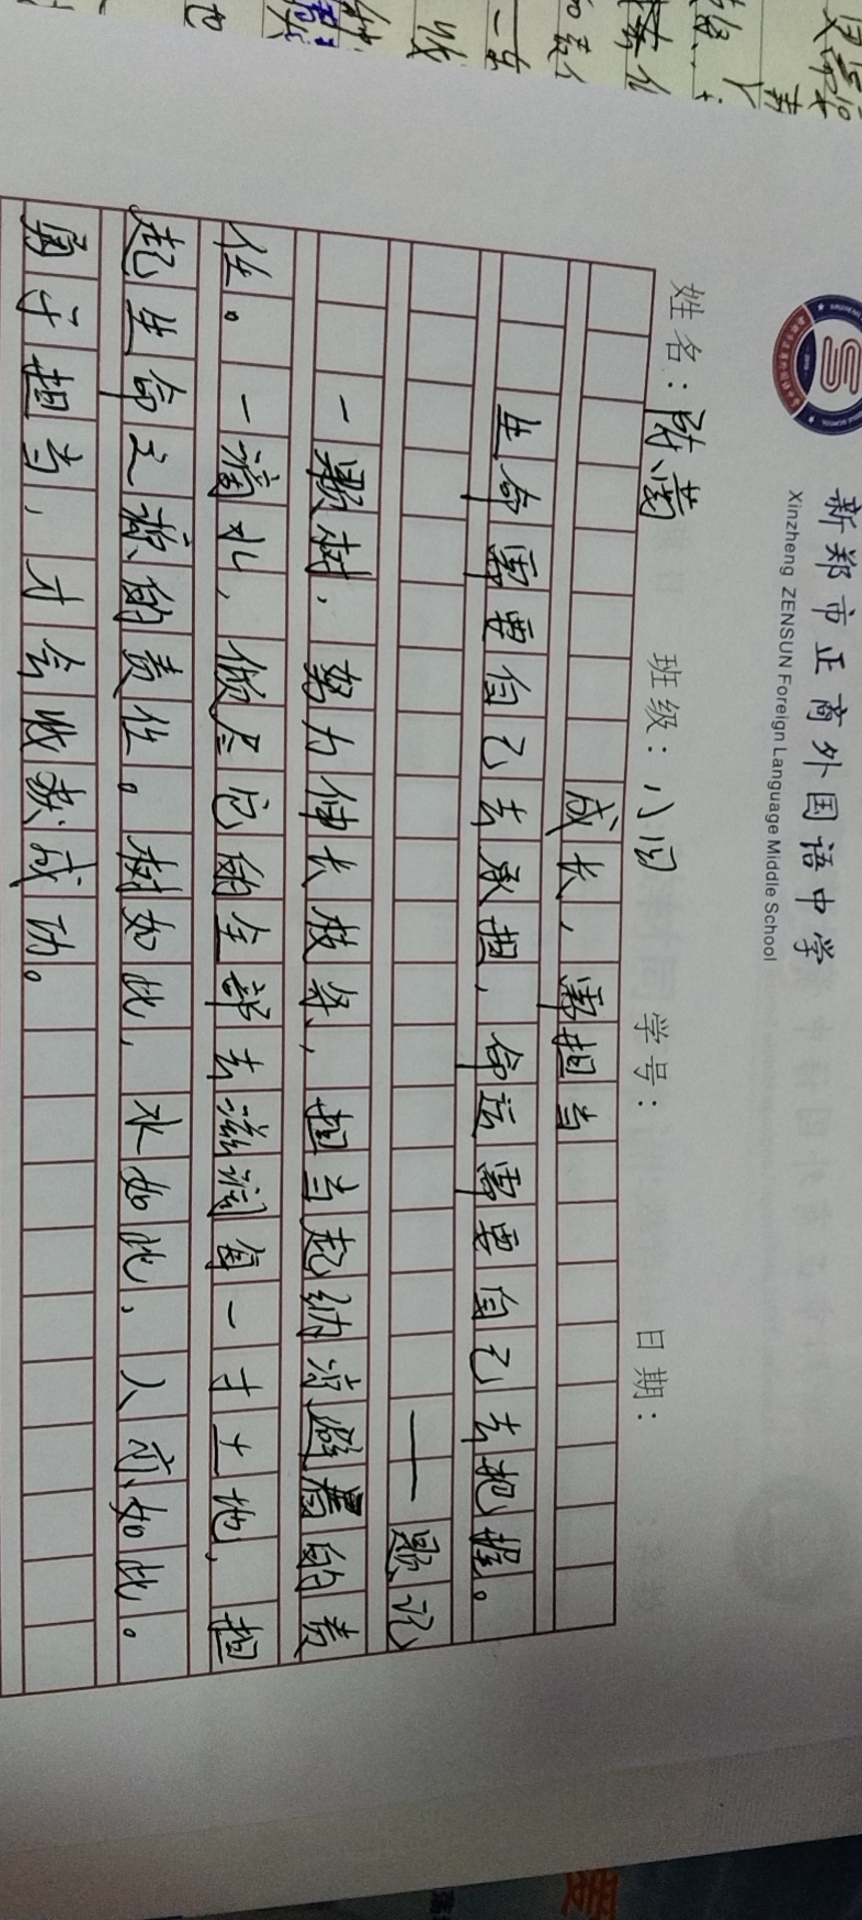 新郑市正商外国语中学
Xinzheng ZENSUN Foreign Language Middle School
姓名： 班级：八 学号： 日期：
成长，需担当
生命需要自己去承担，命运需要自己去把握。
——题记
一颗树，努力伸长枝条，担当起纳凉避暑的责
任。一滴水，倾尽它的全部去滋润每一寸土地，担
起生命之源的责任。树如此，水如此，人亦如此。
勇于担当，才会收获成功。